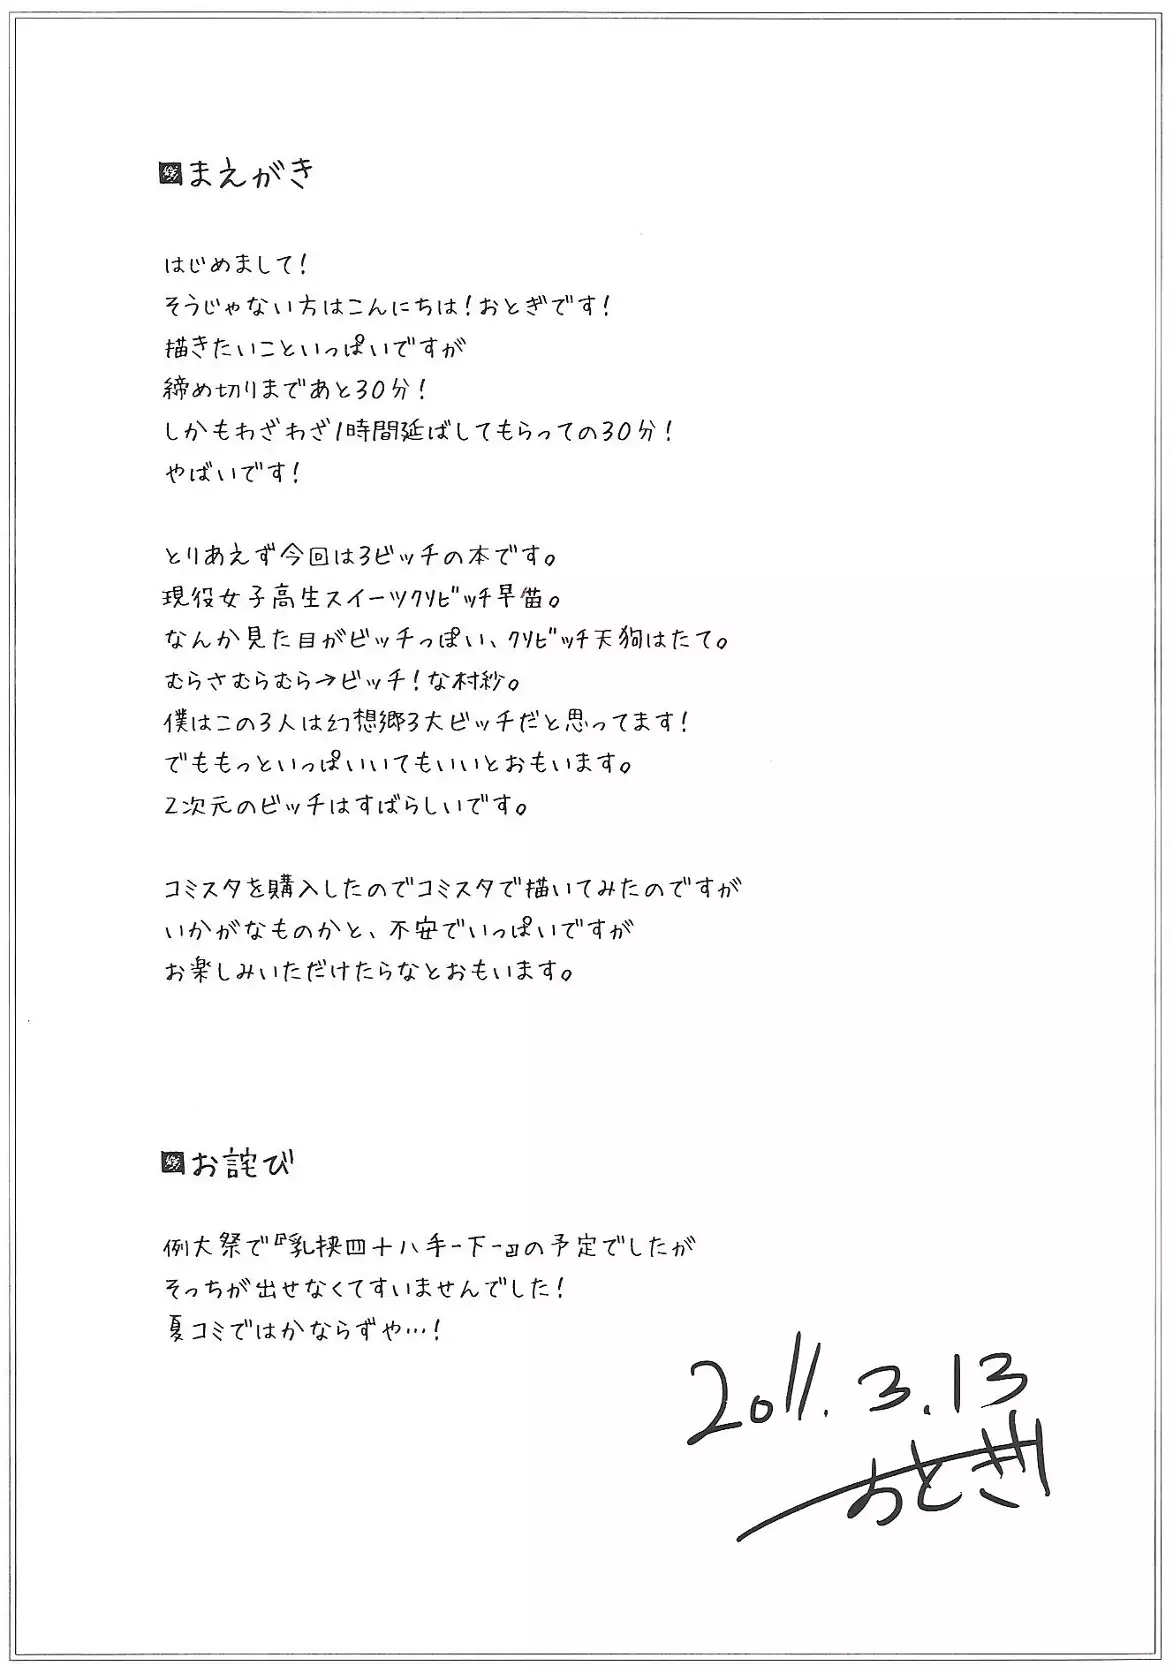 まえがき
はじめまして!
そうじゃない方はこんにちは!おとぎです!
描きたいこといっぱいですが
締め切りまであと30分!
しかもわざわざ1時間延ばしてもらっての30分!
やばいです!
とりあえず今回は3ビッチの本です。
現役女子高生スイーツクソビッチ早苗。
なんか見た目がビッチっぽい、クソビッチ天狗はたて。
むらさむらむら→ビッチ!な村紗。
僕はこの3人は幻想郷3大ビッチだと思ってます!
でももっといっぱいいてもいいとおもいます。
2次元のビッチはすばらしいです。
コミスタを購入したのでコミスタで描いてみたのですが
いかがなものかと、不安でいっぱいですが
お楽しみいただけたらなとおもいます。
お詫び
例大祭で『乳挟四十八手-下-』の予定でしたが
そっちが出せなくてすいませんでした!
夏コミではかならずや…!
2011.3.13
おとぎ